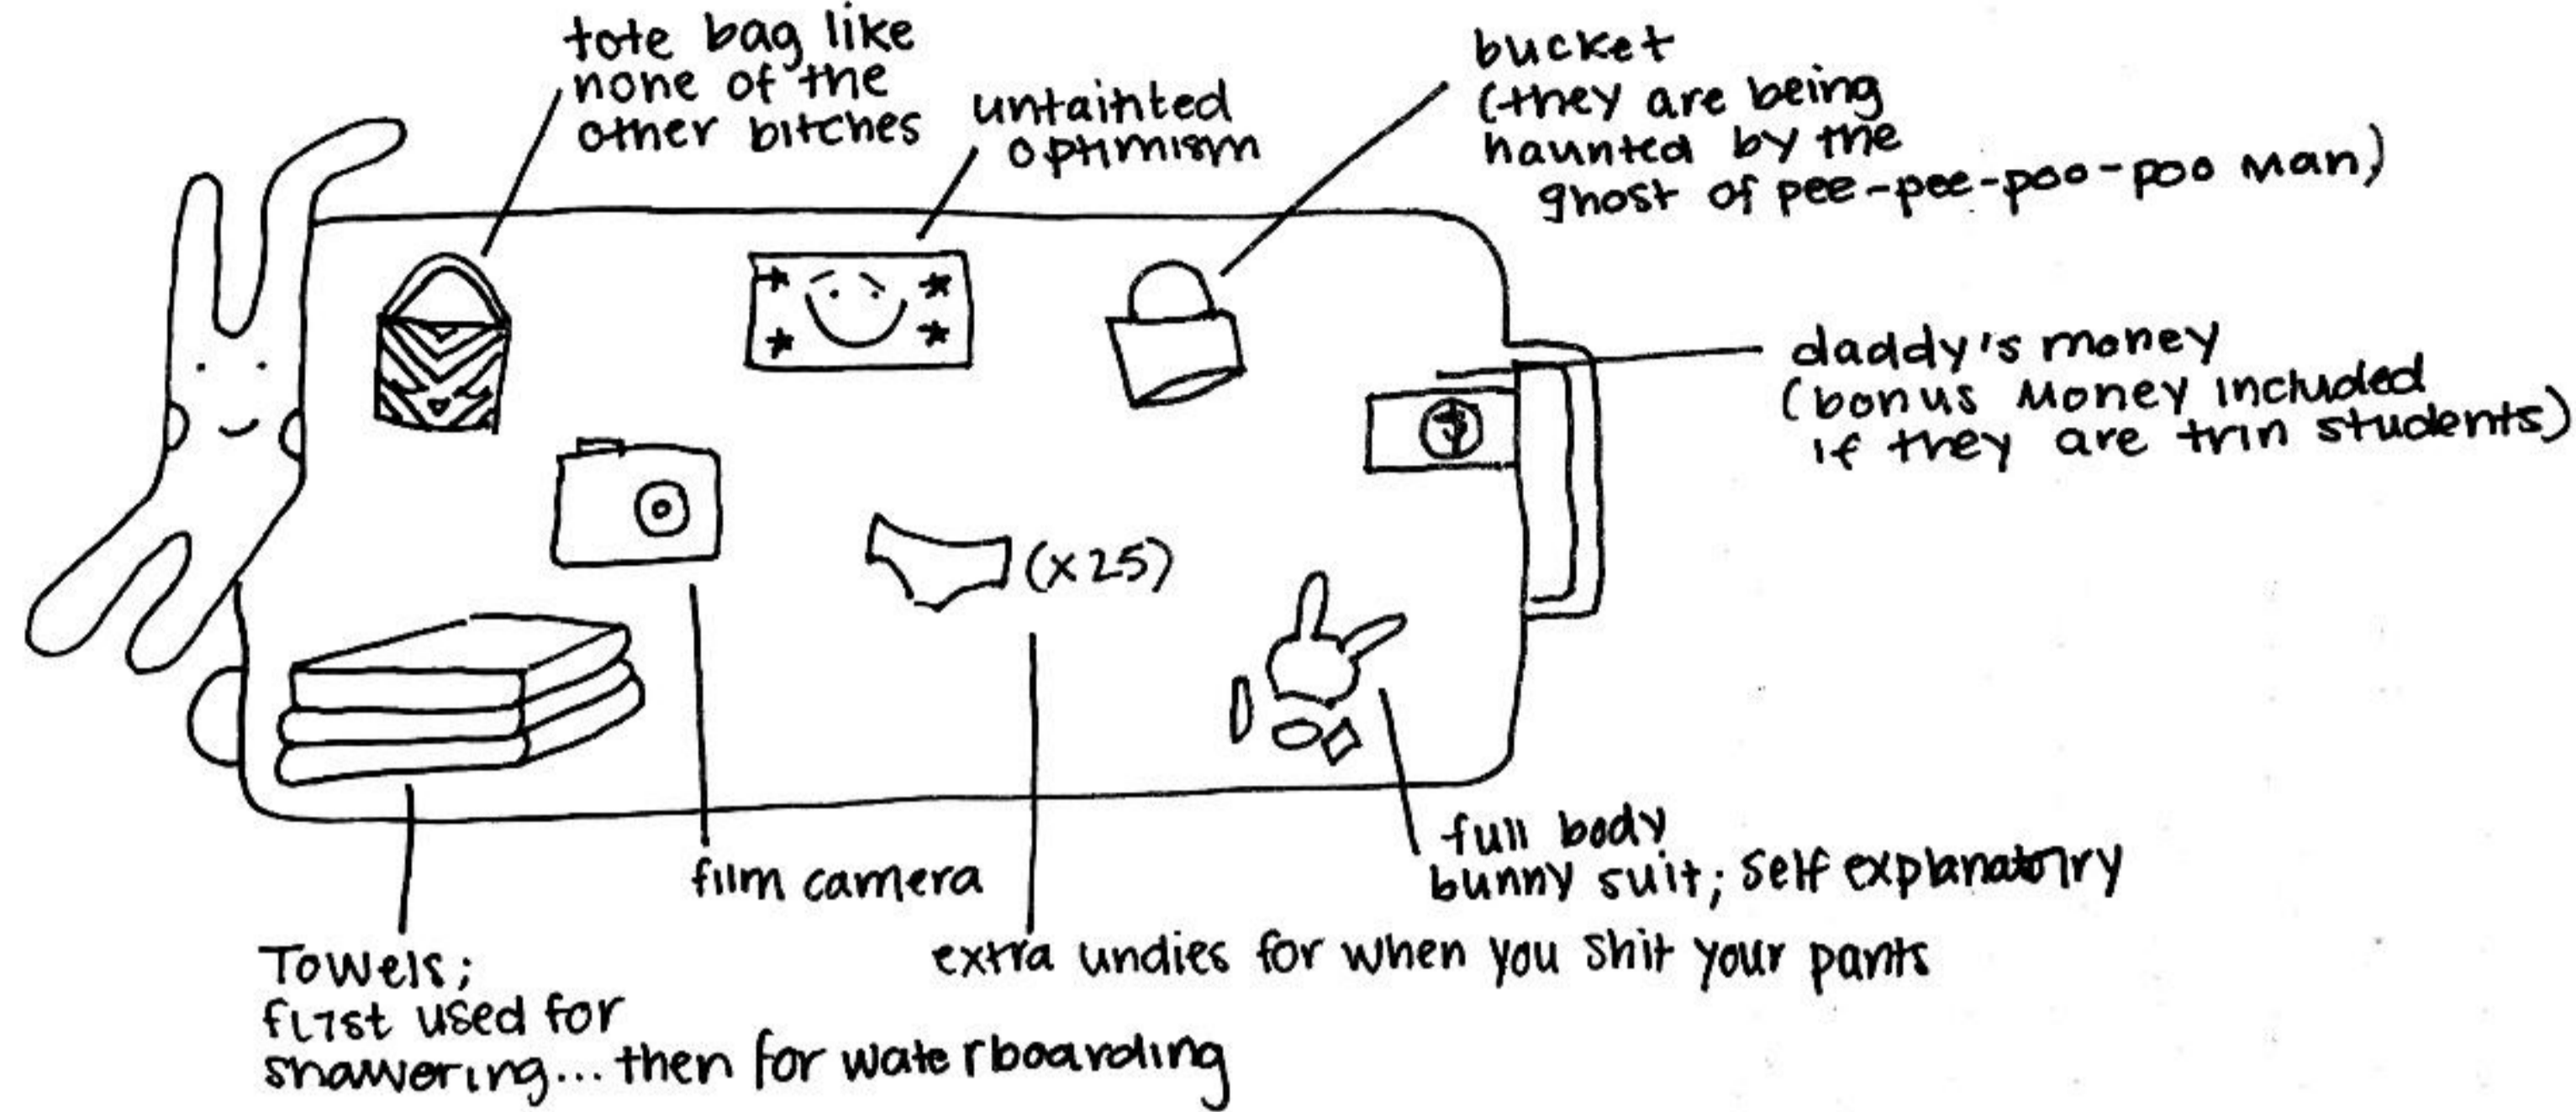 tote bag like
none of the
other bitches
untainted
optimism
bucket
(they are being
haunted by the
ghost of pee-pee-poo-poo man)
$
daddy's money
(bonus money included
if they are trin students)
(x25)
film camera
full body
bunny suit; self explanatory
extra undies for when you shit your pants
Towels;
first used for
showering... then for waterboarding